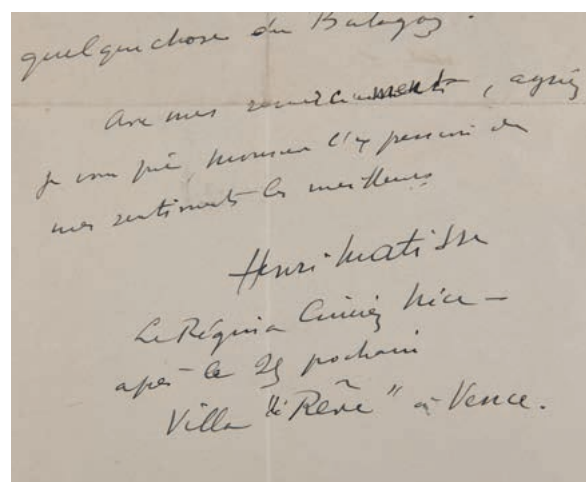 quelque chose du Balagny.
Avec mes remerciements, agréez
je vous prie, monsieur l'expression de
mes sentiments les meilleurs
Henri Matisse
Le Régina Cimiez Nice –
après le 25 prochain
Villa "le Rêve" à Vence.